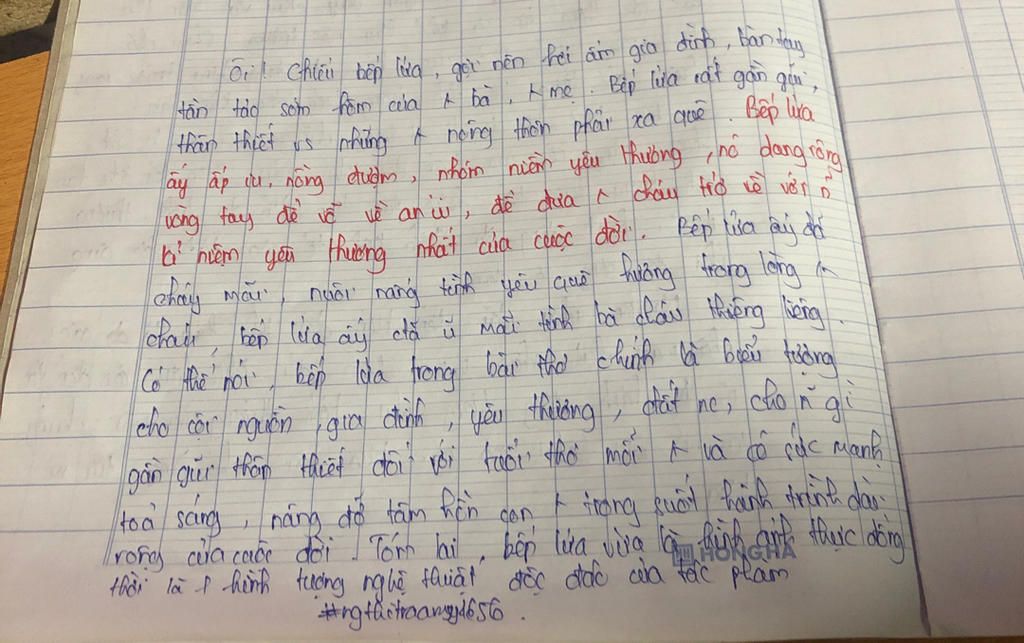 Ôi! Chiếc bếp lửa, gợi nên hơi ấm gia đình, bàn tay
tần tảo sớm hôm của ^ bà, ^ mẹ. Bếp lửa rất gần gũi,
thân thiết vs những ^ nông thôn phải xa quê. Bếp lửa
ấy ấp iu, nồng đượm, nhóm niềm yêu thương, nó dang rộng
vòng tay để vỗ về an ủi, để đưa ^ cháu trở về với ~
kỉ niệm yêu thương nhất của cuộc đời. Bếp lửa ấy đã
cháy mãi, nuôi nấng tình yêu quê hương trong lòng ^
cháu, bếp lửa ấy đã ủ mãi tình bà cháu thiêng liêng.
Có thể nói, bếp lửa trong bài thơ chính là biểu tượng
cho cội nguồn, gia đình, yêu thương, đất nc, cho ~ gì
gần gũi thân thiết đối với tuổi thơ mỗi ^ và có sức mạnh
toả sáng, nâng đỡ tâm hồn con ^ trong suốt hành trình dài
rộng của cuộc đời. Tóm lại, bếp lửa vừa là hình ảnh thực đồng
thời là 1 hình tượng nghệ thuật độc đáo của tác phẩm
HONGHA